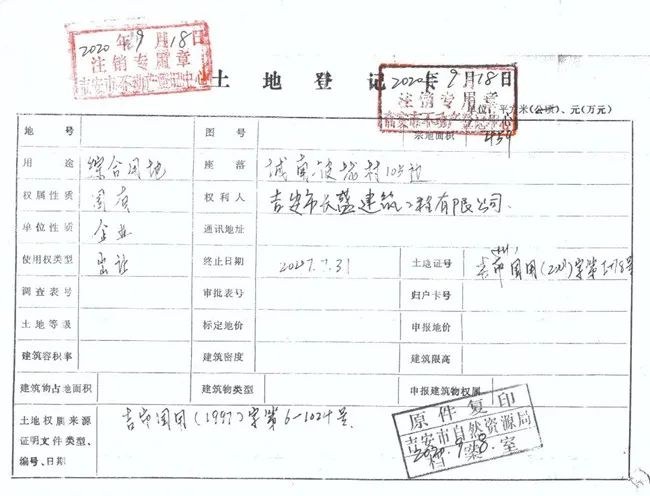 2020年9月18日
注销专用章
吉安市不动产登记中心
土地登记卡
2020年9月18日
注销专用章
吉安市不动产登记中心
单位：平方米(公顷)、元(万元)
地号 图号 宗地面积
用途 综合用地 座落
权属性质 国有 权利人 吉安市长盛建筑工程有限公司
单位性质 企业 通讯地址
使用权类型 出让 终止日期 2047.7.31 土地证号
调查表号 审批表号 归户卡号
土地等级 标定地价 申报地价
建筑容积率 建筑密度 建筑限高
建筑物占地面积 建筑物类型 申报建筑物权属
土地权属来源 吉市国用(1997)字第6-1024号
证明文件类型、
编号、日期
原件复印
吉安市自然资源局
档案室